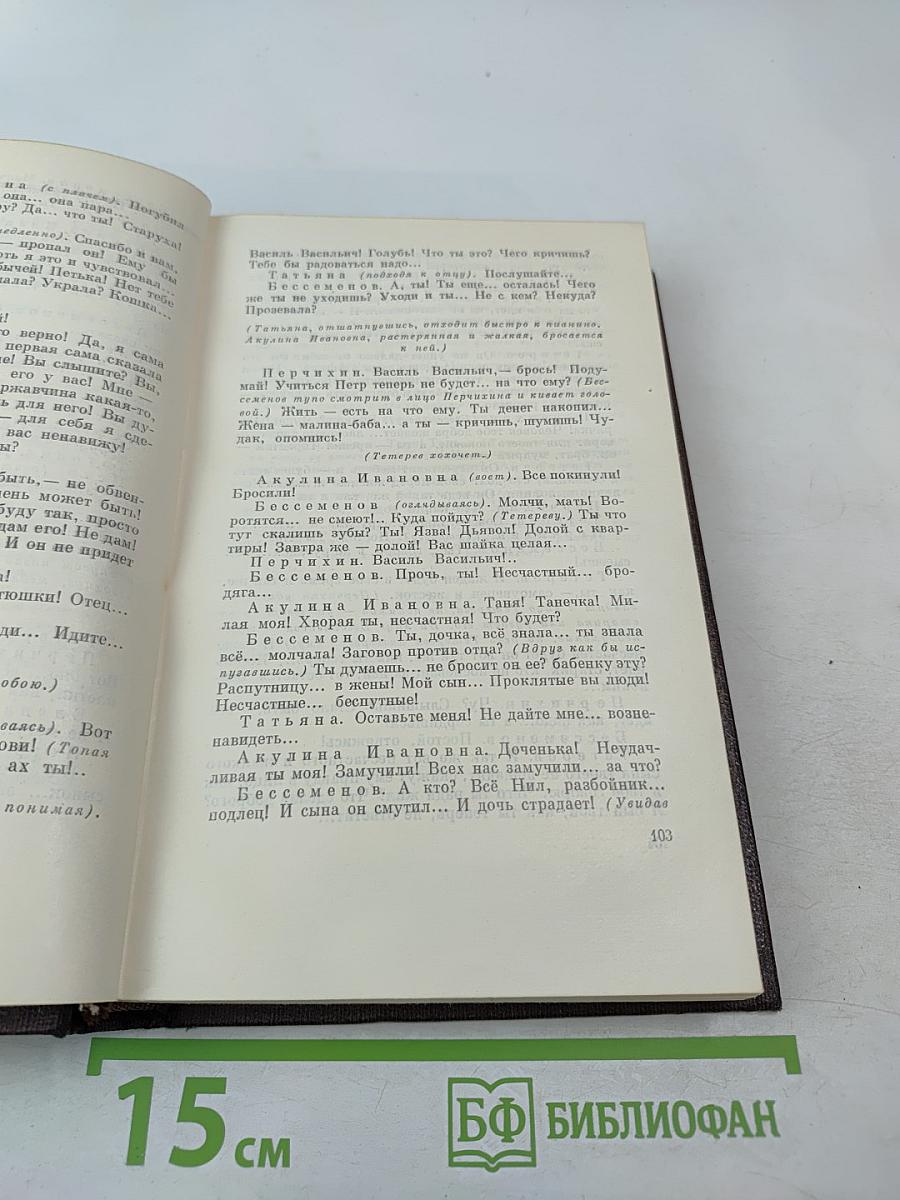 на (с плачем). Погубил
она... она пара...
ру? Да... что ты! Старуха!
медленно). Спасибо и вам,
— пропал он! Ему бы
оть я это и чувствовал...
бычей! Петька! Нет тебе
мала? Украла? Кошка...
й!
го верно! Да, я сама
первая сама сказала
не! Вы слышите? Вы,
его у вас! Мне —
ржавчина какая-то,
ь для него! Вы ду-
— для себя я сде-
вас ненавижу!
ы?
быть,— не обвен-
чень может быть!
буду так, просто
дам его! Не дам!
И он не придет
а!
тюшки! Отец...
ди... Идите...
обою.)
ваясь). Вот
ови! (Топая
ах ты!..
понимая).
Василь Васильич! Голубь! Что ты это? Чего кричишь?
Тебе бы радоваться надо...
Татьяна (подходя к отцу). Послушайте...
Бессеменов. А, ты! Ты еще... осталась! Чего
же ты не уходишь? Уходи и ты... Не с кем? Некуда?
Прозевала?
(Татьяна, отшатнувшись, отходит быстро к пианино.
Акулина Ивановна, растерянная и жалкая, бросается
к ней.)
Перчихин. Василь Васильич,— брось! Поду-
май! Учиться Петр теперь не будет... на что ему? (Бес-
семенов тупо смотрит в лицо Перчихина и кивает голо-
вой.) Жить — есть на что ему. Ты денег накопил...
Жена — малина-баба... а ты — кричишь, шумишь! Чу-
дак, опомнись!
(Тетерев хохочет.)
Акулина Ивановна (воет). Все покинули!
Бросили!
Бессеменов (оглядываясь). Молчи, мать! Во-
ротятся... не смеют!.. Куда пойдут? (Тетереву.) Ты что
тут скалишь зубы? Ты! Язва! Дьявол! Долой с квар-
тиры! Завтра же — долой! Вас шайка целая...
Перчихин. Василь Васильич!..
Бессеменов. Прочь, ты! Несчастный... бро-
дяга...
Акулина Ивановна. Таня! Танечка! Ми-
лая моя! Хворая ты, несчастная! Что будет?
Бессеменов. Ты, дочка, всё знала... ты знала
всё... молчала! Заговор против отца? (Вдруг как бы ис-
пугавшись.) Ты думаешь... не бросит он ее? бабенку эту?
Распутницу... в жены! Мой сын... Проклятые вы люди!
Несчастные... беспутные!
Татьяна. Оставьте меня! Не дайте мне... возне-
навидеть...
Акулина Ивановна. Доченька! Неудач-
ливая ты моя! Замучили! Всех нас замучили... за что?
Бессеменов. А кто? Всё Нил, разбойник...
подлец! И сына он смутил... И дочь страдает! (Увидав
103
15 см
БФ БИБЛИОФАН